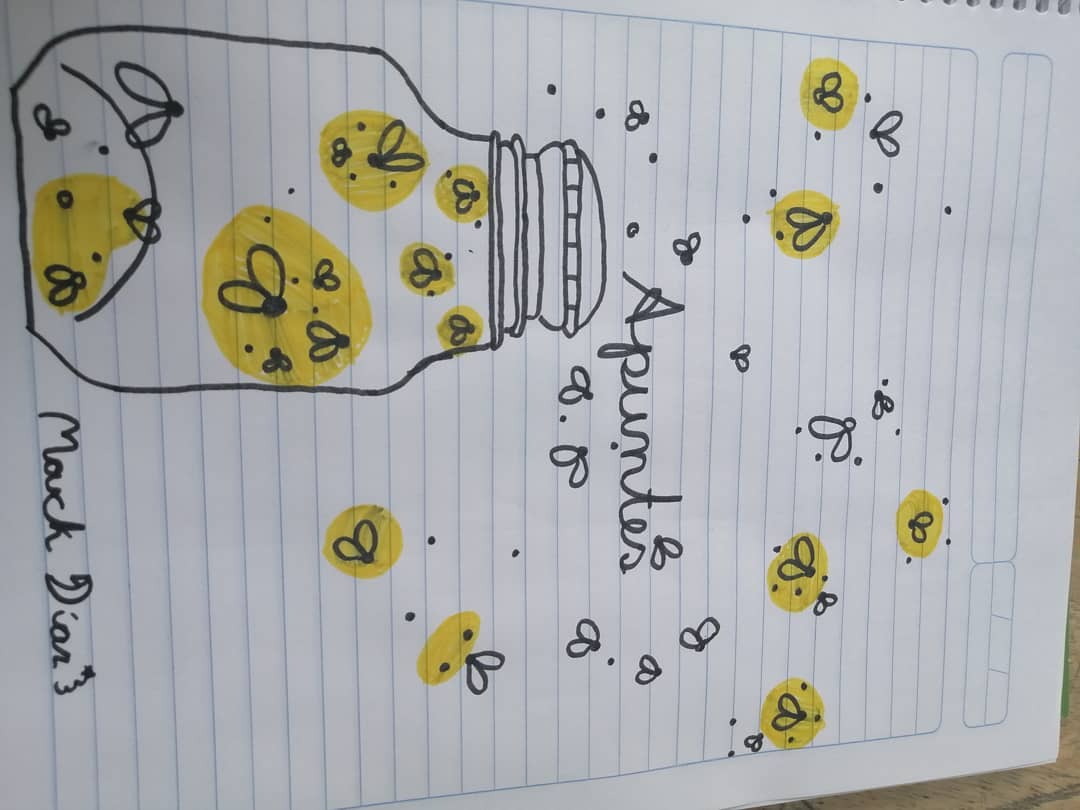 Apuntes
March Diaz *3